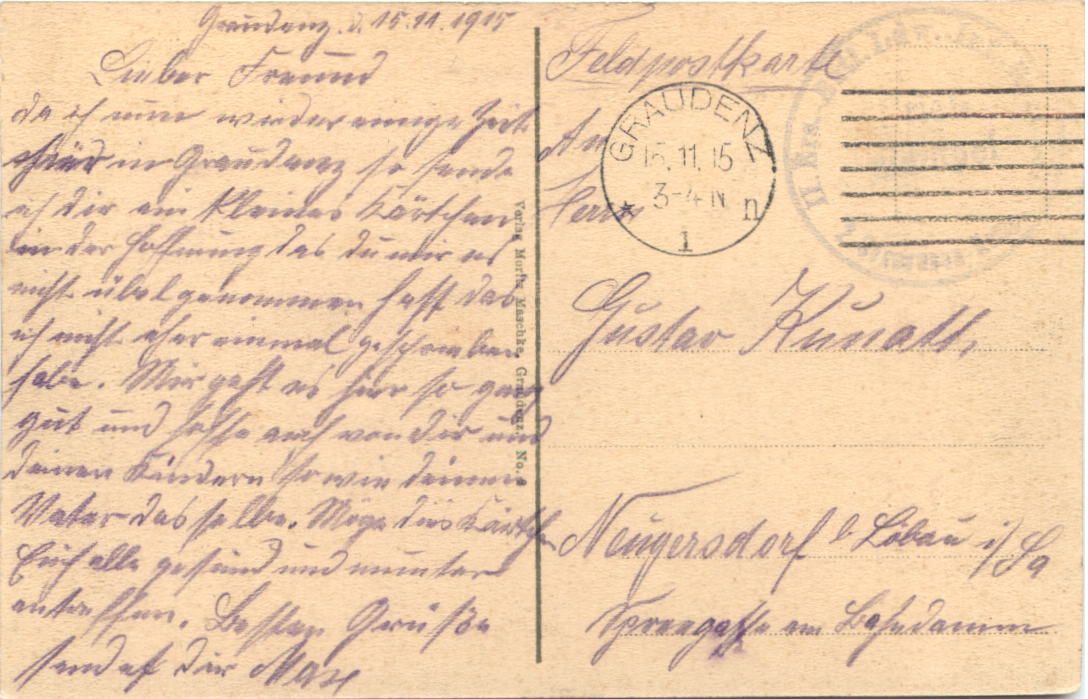 Graudenz, d. 15.11.1915
Lieber Freund
da ich nun wieder einige Zeit
in Graudenz so sende
ich dir ein kleines Kärtchen
in der Hoffnung das du mir es
nicht übel genommen hast das
ich nicht eher einmal geschrieben
habe. Mir geht es hier so ganz
gut und hoffe auch von dir und
deinen Kindern sowie deinem
Vater dasselbe. Möge dies Kärtchen
Euch alle gesund und munter
antreffen. Besten Grüße
sendet dir Max
Verlag Moritz Maschke, Graudenz. No.
Feldpostkarte
An
Herrn
Gustav Kunath,
Neugersdorf b Löbau i/Sa
Spreegasse am Bahndamm
GRAUDENZ
15.11.15
3-4 N
* 1 n
II. Ers.